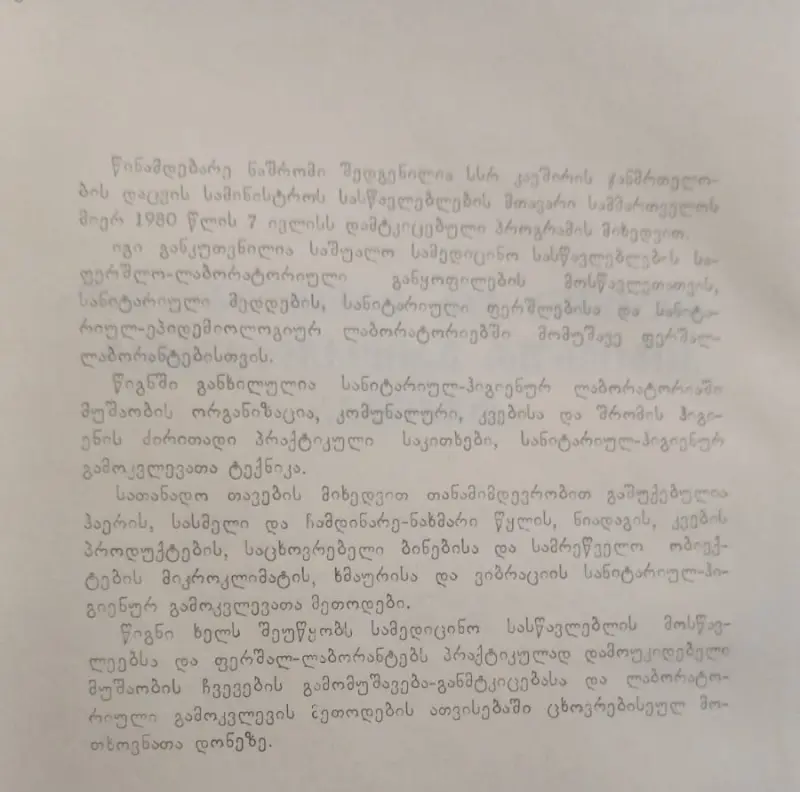 წინამდებარე ნაშრომი შედგენილია სსრ კავშირის ჯანმრთელო-
ბის დაცვის სამინისტროს სასწავლებლების მთავარი სამმართველოს
მიერ 1980 წლის 7 ივლისს დამტკიცებული პროგრამის მიხედვით.
იგი განკუთვნილია საშუალო სამედიცინო სასწავლებლების სა-
ფერშლო-ლაბორატორიული განყოფილების მოსწავლეთათვის,
სანიტარიული მედდების, სანიტარიული ფერშლებისა და სანიტა-
რიულ-ეპიდემიოლოგიურ ლაბორატორიებში მომუშავე ფერშალ-
ლაბორანტებისთვის.
წიგნში განხილულია სანიტარიულ-ჰიგიენურ ლაბორატორიაში
მუშაობის ორგანიზაცია, კომუნალური, კვებისა და შრომის ჰიგი-
ენის ძირითადი პრაქტიკული საკითხები, სანიტარიულ-ჰიგიენურ
გამოკვლევათა ტექნიკა.
სათანადო თავების მიხედვით თანამიმდევრობით გაშუქებულია
ჰაერის, სასმელი და ჩამდინარე-ნახმარი წყლის, ნიადაგის, კვების
პროდუქტების, საცხოვრებელი ბინებისა და სამრეწველო ობიექ-
ტების მიკროკლიმატის, ხმაურისა და ვიბრაციის სანიტარიულ-ჰი-
გიენურ გამოკვლევათა მეთოდები.
წიგნი ხელს შეუწყობს სამედიცინო სასწავლებლის მოსწავ-
ლეებსა და ფერშალ-ლაბორანტებს პრაქტიკულად დამოუკიდებელი
მუშაობის ჩვევების გამომუშავება-განმტკიცებასა და ლაბორატო-
რიული გამოკვლევის მეთოდების ათვისებაში ცხოვრებისეულ მო-
თხოვნათა დონეზე.